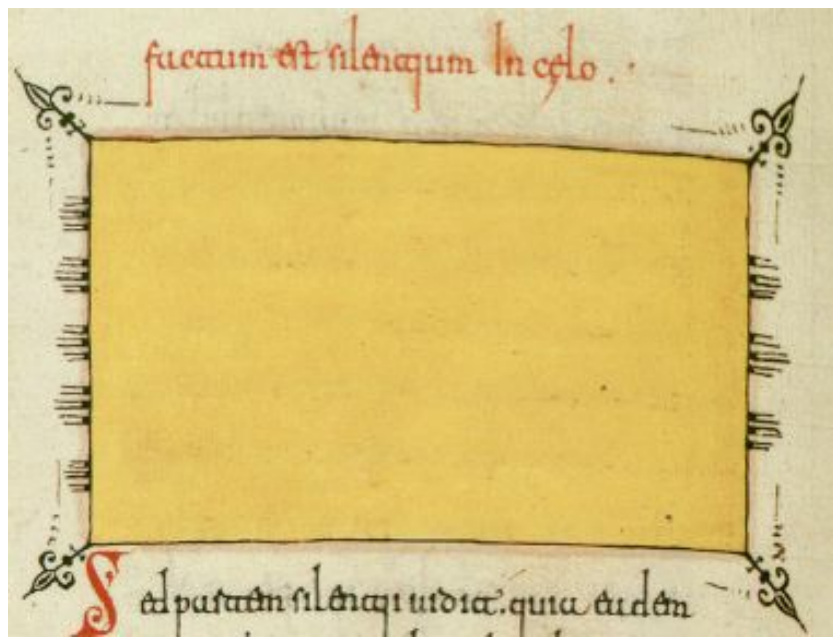 factum est silentium In cęlo .
Sed partem silentii uidit. quia eadem